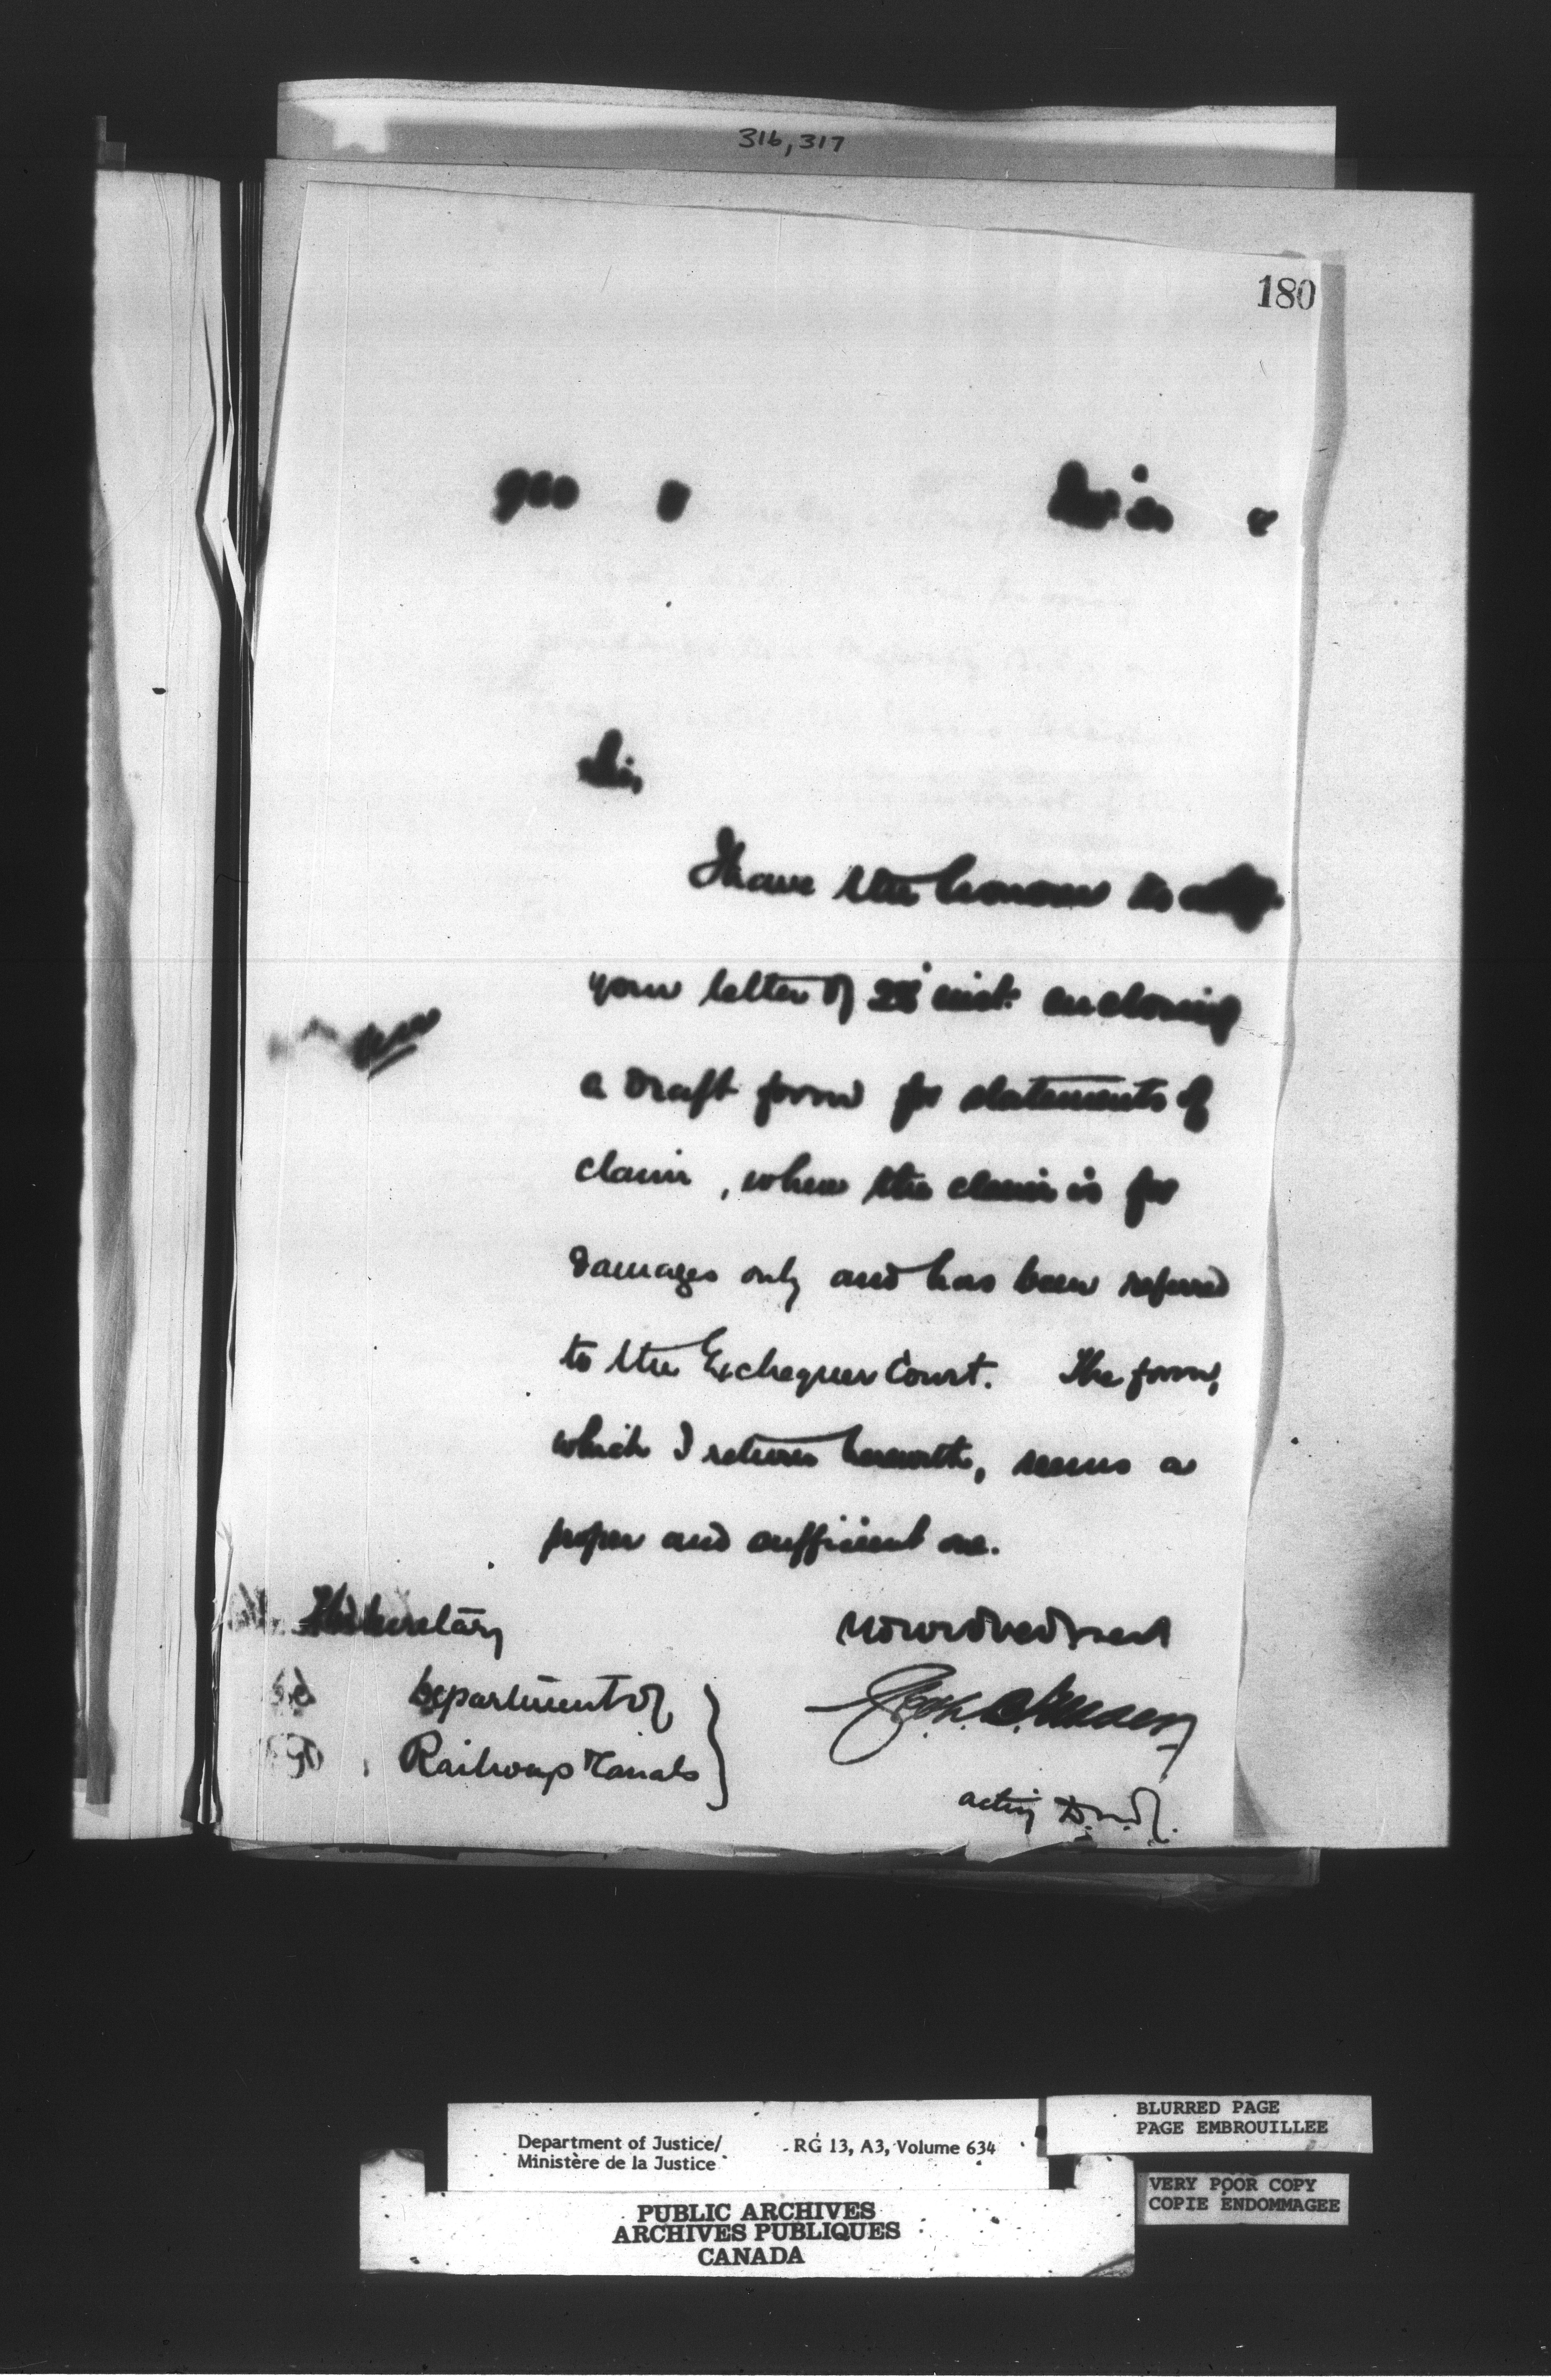 316, 317
180
Sir,
I have the honour to
your letter of 28 inst. enclosing
a draft form for statements of
claim, where the claim is for
damages only and has been referred
to the Exchequer Court. The form,
which I return herewith, seems a
proper and sufficient one.
The Secretary
Department of
Railways & Canals
acting D.M.J.
BLURRED PAGE
PAGE EMBROUILLEE
Department of Justice/ RG 13, A3, Volume 634
Ministère de la Justice
VERY POOR COPY
COPIE ENDOMMAGEE
PUBLIC ARCHIVES
ARCHIVES PUBLIQUES
CANADA